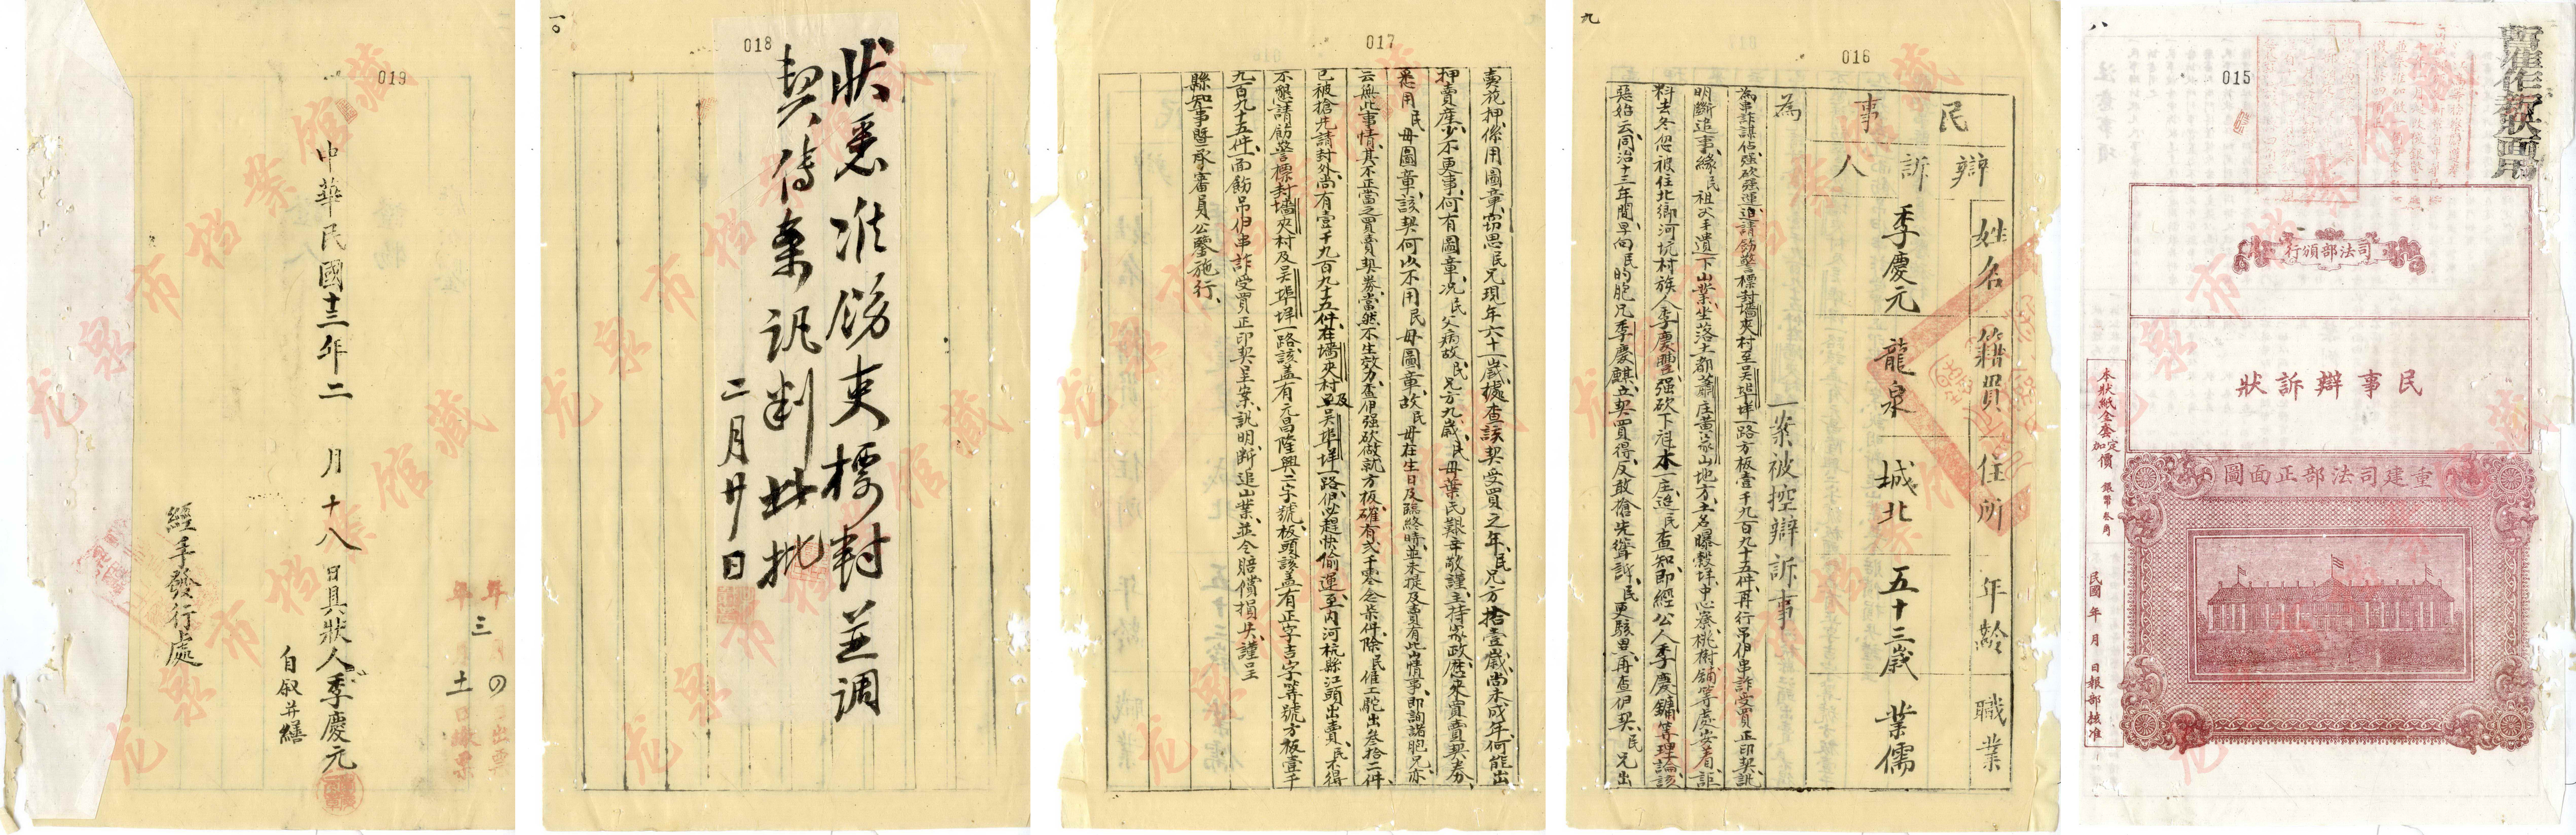 八
015
暫准作新狀適用
司法部頒行
民事辯訴狀
本狀紙全套定價銀幣叁角
民國 年 月 日報部核准
重建司法部正面圖
九
016
民事
辯訴人
姓名
籍貫
住所
年齡
職業
季慶元
龍泉
城北
五十三歲
業儒
為
一案被控辯訴事
為串詐謀佔強砍強運迫請飭警標封墻夾村至吳埠垟一路方板壹千九百九十五件再行吊伊串詐受買正印契訊
明斷追事緣民祖父手遺下山業坐落大都蕭庄黃家山地方土名曝穀垟中心寮桃樹鋪等處安着詎
料去冬忽被住北鄉河坑村族人季慶豐強砍下木一庄迨民查知即經公人季慶鏞等理論該
惡始云同治十三年間早向民的胞兄季慶麒立契買得反敢搶先聳訴民更駭異再查伊契民兄出
017
賣花押係用圖章竊思民兄現年六十一歲據查該契受買之年民兄方拾壹歲尚未成年何能出
押賣產少不更事何有圖章況民父病故民兄方九歲民母葉氏艱辛敬謹主持家政歷來買賣契券
悉用民母圖章該契何以不用民母圖章故民母在生日及臨終時並未提及賣有此山情事即詢諸胞兄亦
云無此事情其不正當之買賣契券當然不生效力查伊強砍做就方板確有弍千零念柒件除民僱工駝出叁拾二件
已被搶先請封外尚有壹千九百九十五件在墻夾村及至吳埠垟一路伊必趕快偷運至內河杭縣江頭出賣民不得
不懇請飭警標封墻夾村及吳埠垟一路該蓋有元昌隆興二字號板頭該蓋有正字吉字等號方板壹千
九百九十五件一面飭吊伊串詐受買正印契呈案訊明斷追山業並令賠償損失謹呈
縣知事暨承審員公鑒施行
一〇
018
狀悉准飭吏標封並調
契傳案訊判此批
二月廿日
019
中華民國十三年二月十八日具狀人季慶元
自叙并繕
經手發行處
年三月〇日出票
年 月十一日繳票
龙泉市档案馆藏